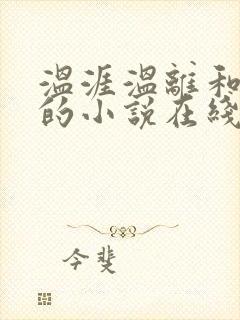 温涯温離和
的小说在綫
今斐